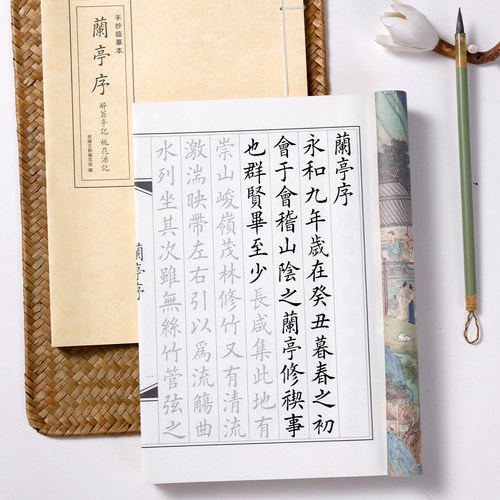 手抄臨摹本
蘭亭序
醉翁亭記 桃花源記
蘭亭序
永和九年歲在癸丑暮春之初
會于會稽山陰之蘭亭修禊事
也群賢畢至少長咸集此地有
崇山峻嶺茂林修竹又有清流
激湍映帶左右引以爲流觴曲
水列坐其次雖無絲竹管弦之
蘭亭序
一